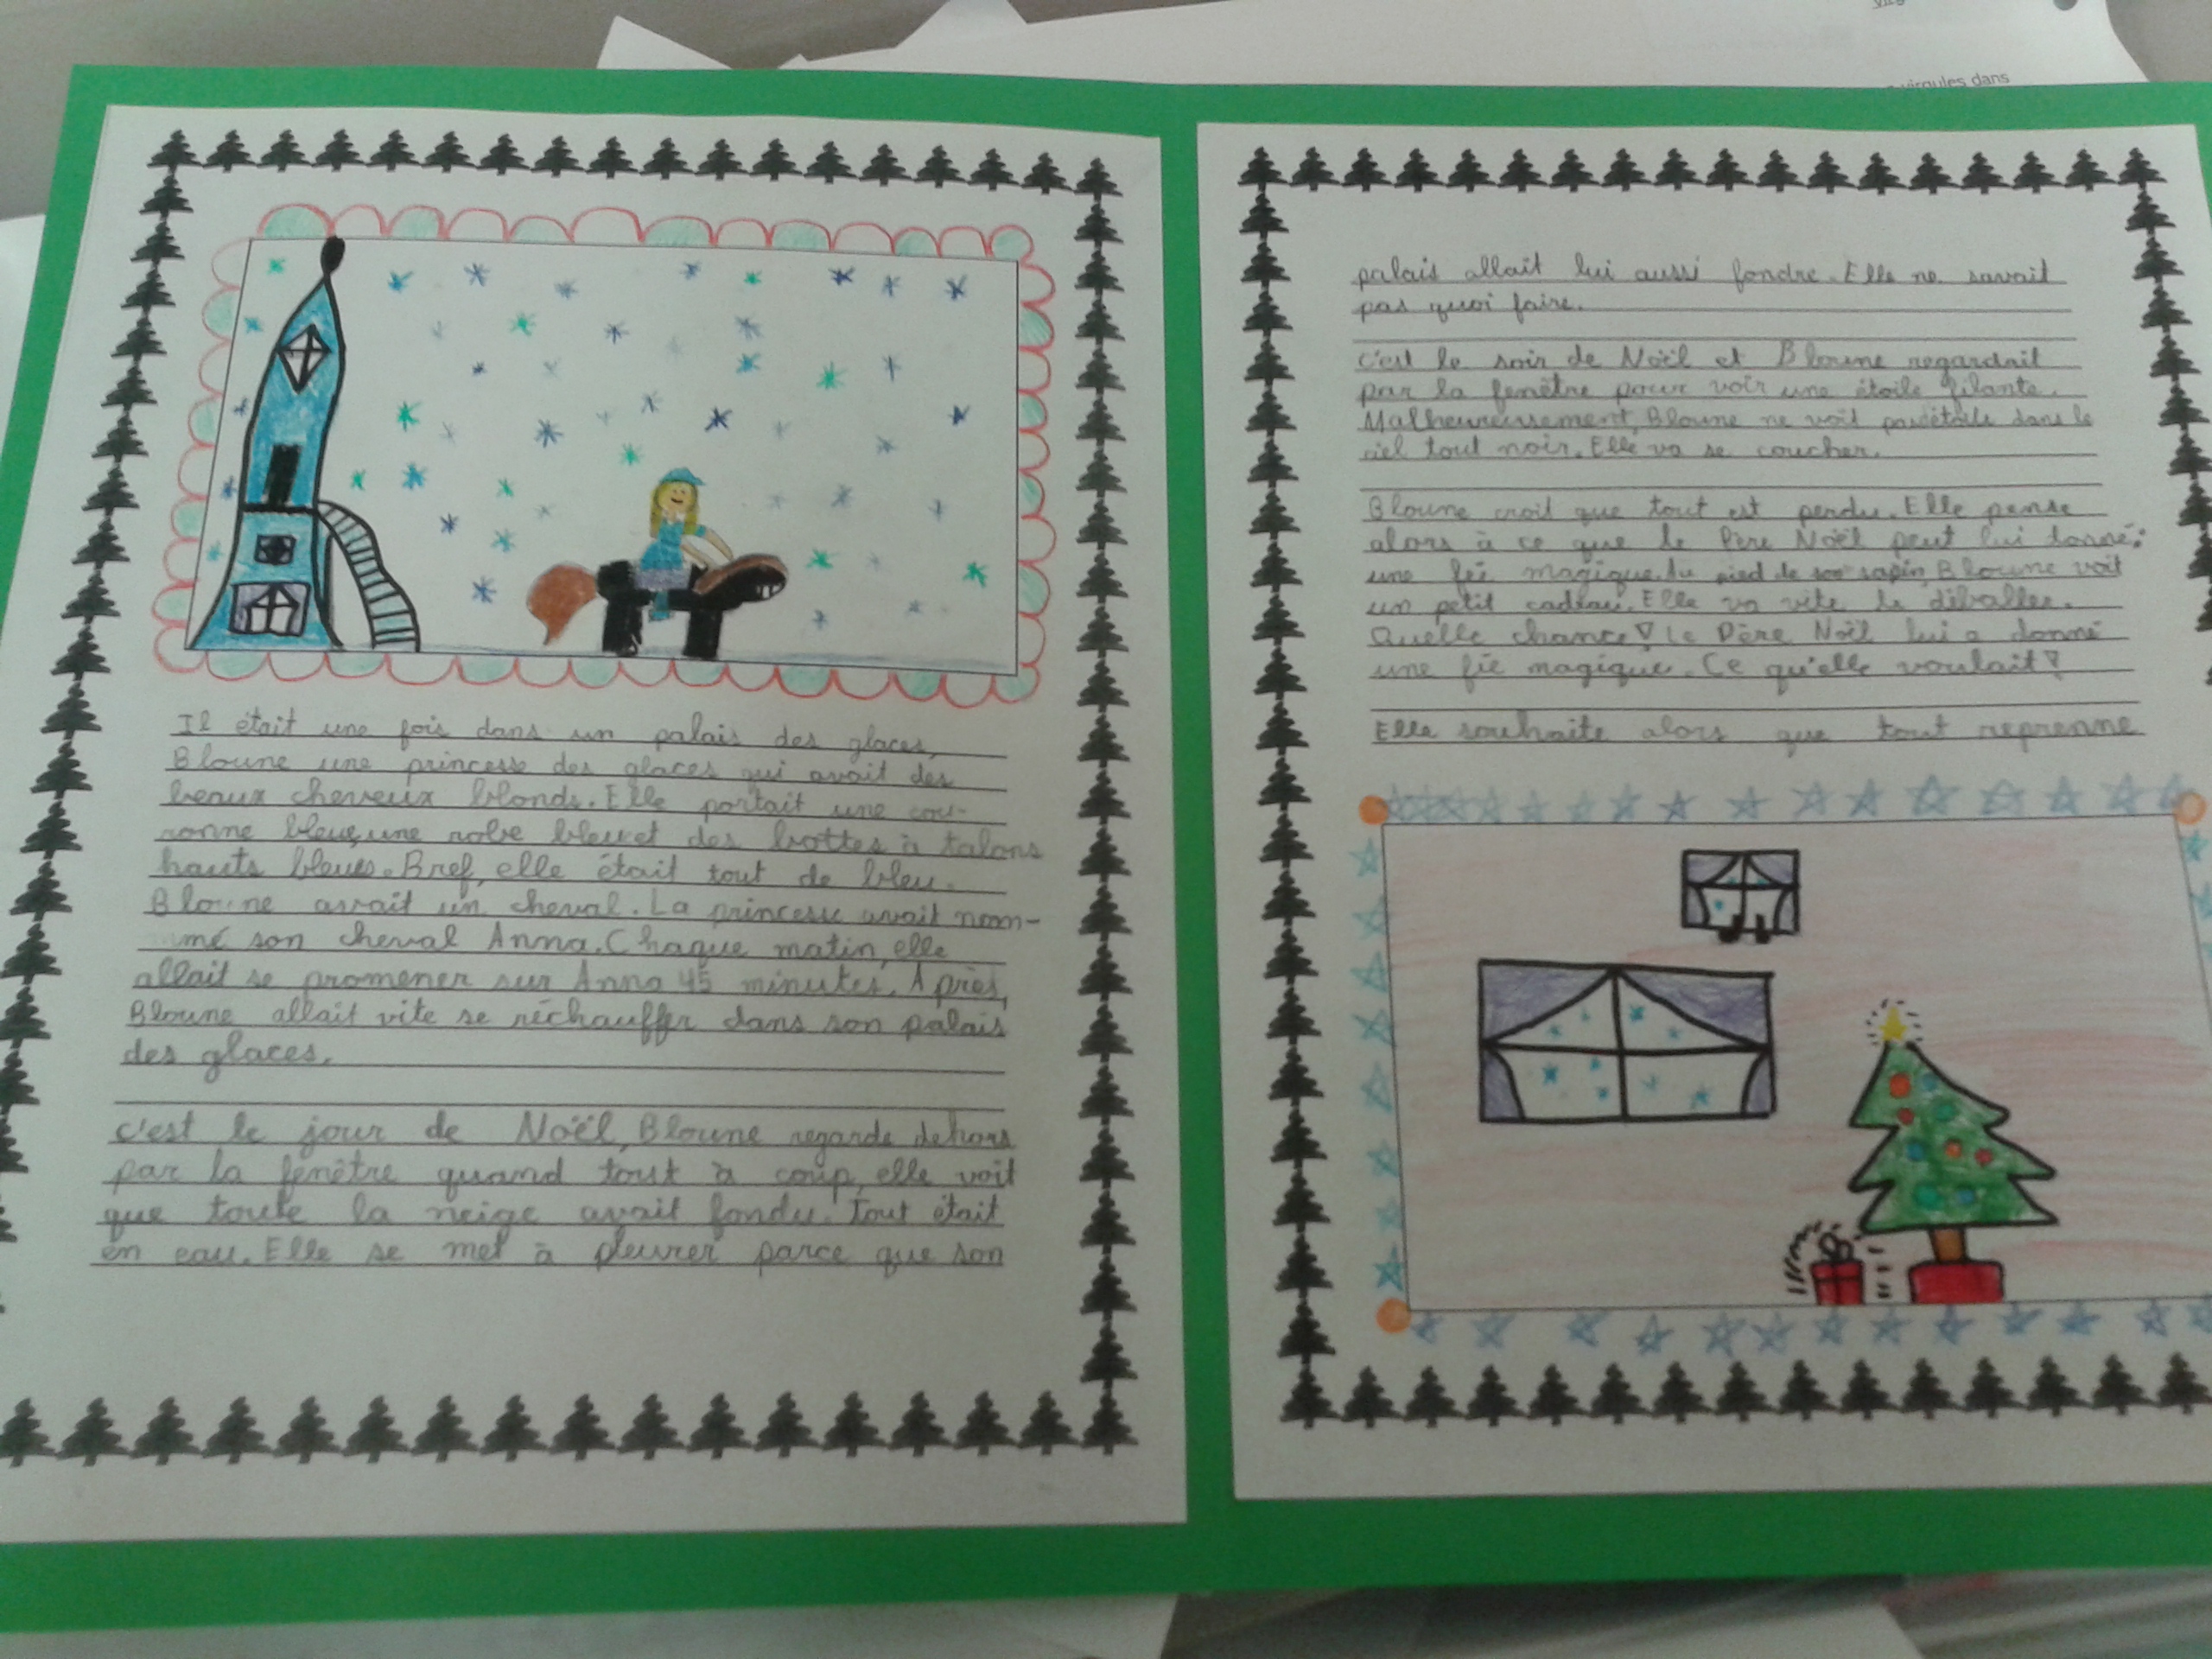 Il était une fois dans un palais des glaces,
Bloune une princesse des glaces qui avait des
beaux cheveux blonds. Elle portait une cou-
ronne bleue, une robe bleu et des bottes à talons
hauts bleues. Bref, elle était tout de bleu.
Bloune avait un cheval. La princesse avait nom-
mé son cheval Anna. Chaque matin, elle
allait se promener sur Anna 45 minutes. Après,
Bloune allait vite se réchauffer dans son palais
des glaces.
c'est le jour de Noël, Bloune regarde dehors
par la fenêtre quand tout à coup, elle voit
que toute la neige avait fondu. Tout était
en eau. Elle se met à pleurer parce que son
virgules dans
palais allait lui aussi fondre. Elle ne savait
pas quoi faire.
c'est le soir de Noël et Bloune regardait
par la fenêtre pour voir une étoile filante.
Malheureusement, Bloune ne voit pas d'étoile dans le
ciel tout noir. Elle va se coucher.
Bloune croit que tout est perdu. Elle pense
alors à ce que le Père Noël peut lui donné:
une fée magique. Au pied de son sapin, Bloune voit
un petit cadeau. Elle va vite le déballer.
Quelle chance! Le Père Noël lui a donné
une fée magique. Ce qu'elle voulait!
Elle souhaite alors que tout reprenne